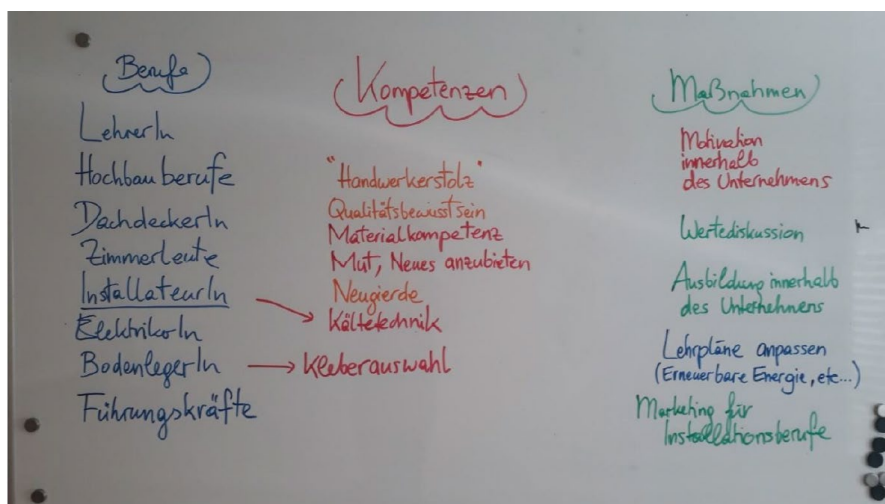 Berufe
LehrerIn
Hochbauberufe
DachdeckerIn
Zimmerleute
InstallateurIn
ElektrikerIn
BodenlegerIn
Führungskräfte
Kompetenzen
"Handwerkerstolz"
Qualitätsbewusstsein
Materialkompetenz
Mut, Neues anzubieten
Neugierde
Kältetechnik
Kleberauswahl
Maßnahmen
Motivation
innerhalb
des Unternehmens
Wertediskussion
Ausbildung innerhalb
des Unternehmens
Lehrpläne anpassen
(Erneuerbare Energie, etc...)
Marketing für
Installationsberufe